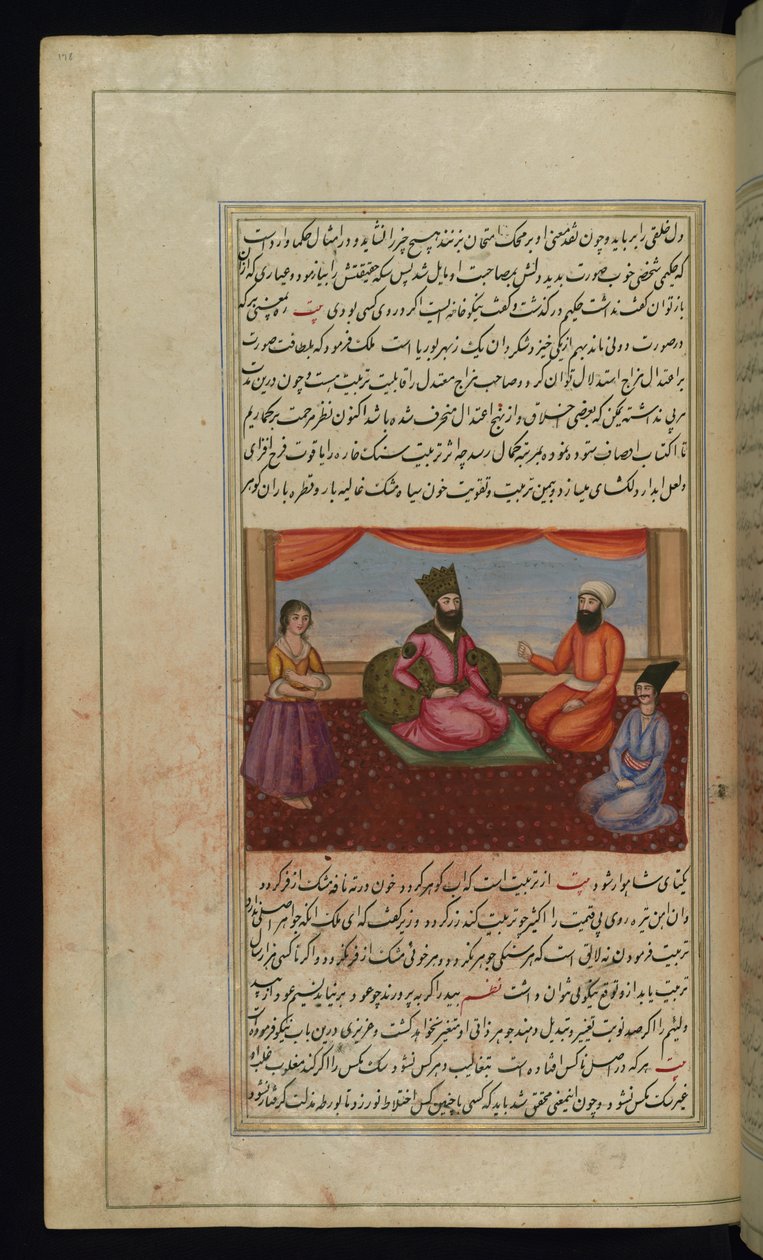 ۱۷۶
دل خلقی را برباید و چون نقد معنی او بر محک امتحان برنند هیچ چیز را نشاید و در امثال حکما وارد است
که حکیمی شخصی خوب صورت بدید دلش بمصاحبت او مایل شد پس سکه حقیقتش را بیازمود و عیاری که از آن
باز توان گفت نداشت حکیم درگذشت و گفت نیکو خانه ایست اگر در وی کسی بودی بیت بمعنی
در صورت دو نی ماند بهم از یکی خیزد شکر وان یک زبهر بوریا است ملک فرمود که بلطافت صورت
بر اعتدال مزاج استدلال توان کرد و صاحب مزاج معتدل را قابلیت تربیت هست و چون درین مدت
مربی نداشته یمکن که بعضی اخلاق او از نهج اعتدال منحرف شده باشد اکنون نظر مرحمت برگماریم
تا اکتساب اوصاف ستوده نموده بمرتبه کمال رسد چه اثر تربیت سنگ خاره را یاقوت فرح افزای
و لعل ابدار دلگشای میسازد و بیمن تربیت و تقویت خون سیاه مشک غالیه بار و قطره باران گوهر
یکتای شاهوار شود بیت از تربیت است کاب گوهر گردد خون در ته نافه مشک ازفر گردد
وان امن تیره روی بی قیمت را اکسیر چو تربیت کند زر گردد وزیر گفت که ای ملک انکه جوهر اصلی ندارد
تربیت فرمودن نه لایق است که هر سنگی جوهر نگردد و هر خونی مشک ازفر نگردد و اگر ناکسی هزار سال
تربیت یابد ازو توقع نیکوئی نتوان داشت نظم بید را گر بپرورند چو عود بر نیاید نسیم عود از بید
و لئیم را اگر صد نوبت تغییر و تبدیل دهند جوهر ذاتی او متغیر نخواهد گشت و عزیزی درین باب نیکو فرموده است
بیت هر که در اصل ناکس افتاده است بتغالیب دهر کس نشود سگ مگس را اگر کنند مقلوب قلب او
غیر سگ مگس نشود و چون اینمعنی محقق شد باید که کسی با چنین کس اختلاط نورزد تا بورطه مذلت گرفتار نشود و